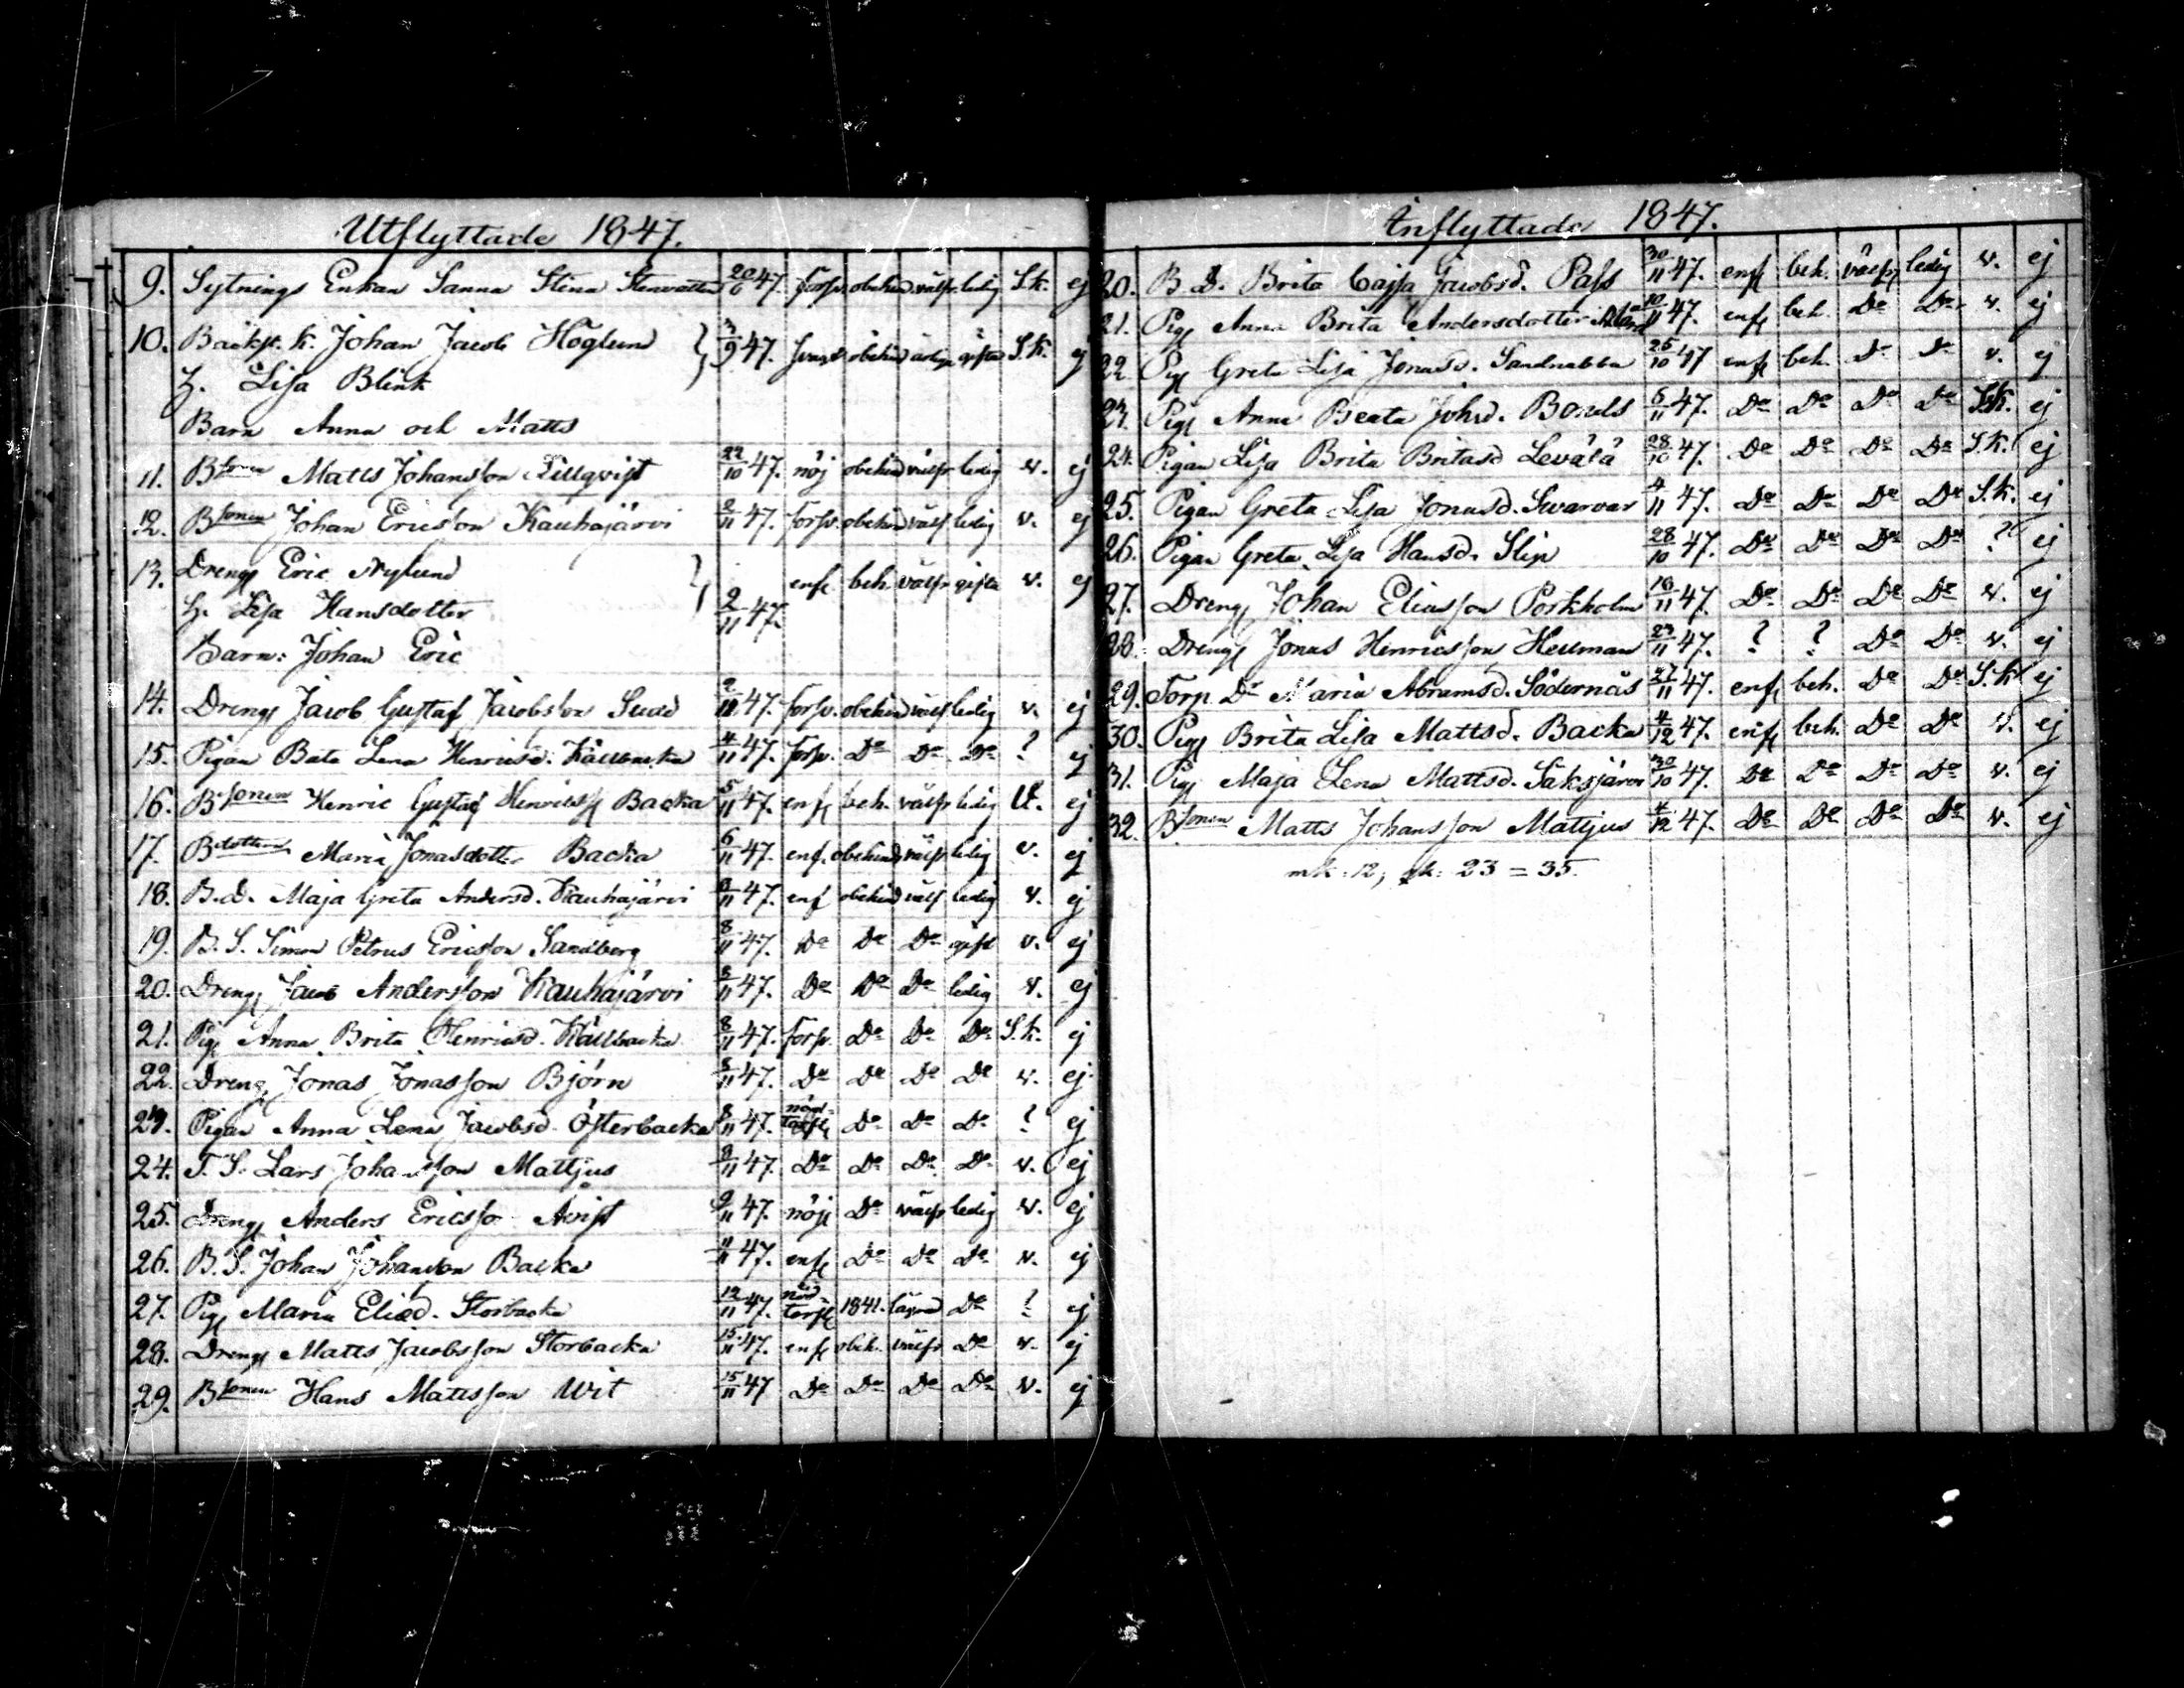 Utflyttade 1847.
9. Sytnings Enkan Sanna Stina 20/10 47. försv. obehind. välfr. ledig S.k. ej
10. Backst. k. Johan Jacob Höglund } 3/9 47. obehind gifta S.k. ej
h. Lisa Blink
Barn Anna och Matts
11. Bsonen Matts Johansson Lillqvist 22/10 47. nöj obehind välfr ledig v. ej
12. Bsonen Johan Ericsson Kauhajärvi 2/11 47. försv. obehind välf ledig v. ej
13. Drengn Eric Nylund } enf beh. välfr gifta v. ej
h. Lisa Hansdotter 2/11 47.
Barn: Johan Eric
14. Dreng Jacob Gustaf Jacobsson 2/11 47. försv. obehind välf ledig v. ej
15. Pigan Lena Henricsd. Källbacka 4/11 47. försv. Do Do Do ? ej
16. Bsonen Henric Gustaf Henricss Backa 5/11 47. enf beh. välfr ledig v. ej
17. Bdottern Maria Jonasdotter Backa 6/11 47. enf. obehind välfr ledig v. ej
18. B.d. Maja Greta Andersd. Kauhajärvi 47. enf obehind välf ledig v. ej
19. B.S. Simon Petrus Ericsson Sandberg 8/11 47. Do Do Do gift v. ej
20. Dreng Jacob Andersson Kauhajärvi 8/11 47. Do Do Do ledig v. ej
21. Pig Anna Brita Henricsd. Källbacka 8/11 47. försv. Do Do Do S.k. ej
22. Dreng Jonas Jonasson Björn 8/11 47. Do Do Do Do v. ej
23. Pigan Anna Lena Jacobsd. Österbacka 8/11 47. nöd- torft Do Do Do ? ej
24. T. S. Lars Johansson Mattjus 8/11 47. Do Do Do Do v. ej
25. Dreng Anders Ericsso Avist 9/11 47. nöj Do välfr ledig v. ej
26. B. S. Johan Johansson Backa 11/11 47. enf Do Do Do v. ej
27. Pig Maria Eliæd. Storbacka 12/11 47. nöd- torft 1841. Do ? ej
28. Dreng Matts Jacobsson Storbacka 15/11 47. enf obeh. välfr Do v. ej
29. Bsonen Hans Mattsson Wit 15/11 47 Do Do Do Do v. ej
Inflyttade 1847.
20. B. D. Brita Cajsa Jacobsd. Pass 30/11 47. enf beh. välfr ledig v. ej
21. Pig Anna Brita Andersdotter 10/11 47. enf beh. Do Do v. ej
22. Pig Greta Lisa Jonasd. Sandnabba 26/10 47 enf beh. Do Do v. ej
23. Pig Anna Beata Johsd. Bonds 6/11 47. Do Do Do Do S.k. ej
24. Pigan Lisa Brita Britasd Levälä 28/10 47. Do Do Do Do S.k. ej
25. Pigan Greta Lisa Jonasd. Swarvar 4/11 47. Do Do Do Do S.k. ej
26. Pigan Greta Lisa Hansd. Slip 28/10 47. Do Do Do Do ? ej
27. Dreng Johan Eliasson Porkholm 16/11 47. Do Do Do Do v. ej
28. Dreng Jonas Henricsson Herman 23/11 47. ? ? Do Do v. ej
29. Torp. Dr Maria Abramsd. Södernäs 27/11 47. enf beh. Do Do S.k. ej
30. Pig Brita Lisa Mattsd. Backa 4/12 47. enf beh. Do Do v. ej
31. Pig Maja Lena Mattsd. Säksjärvi 30/10 47. Do Do Do Do v. ej
32. Bsonen Matts Johansson Mattjus 4/12 47. Do Do Do Do v. ej
mk: 12; qk: 23 = 35.